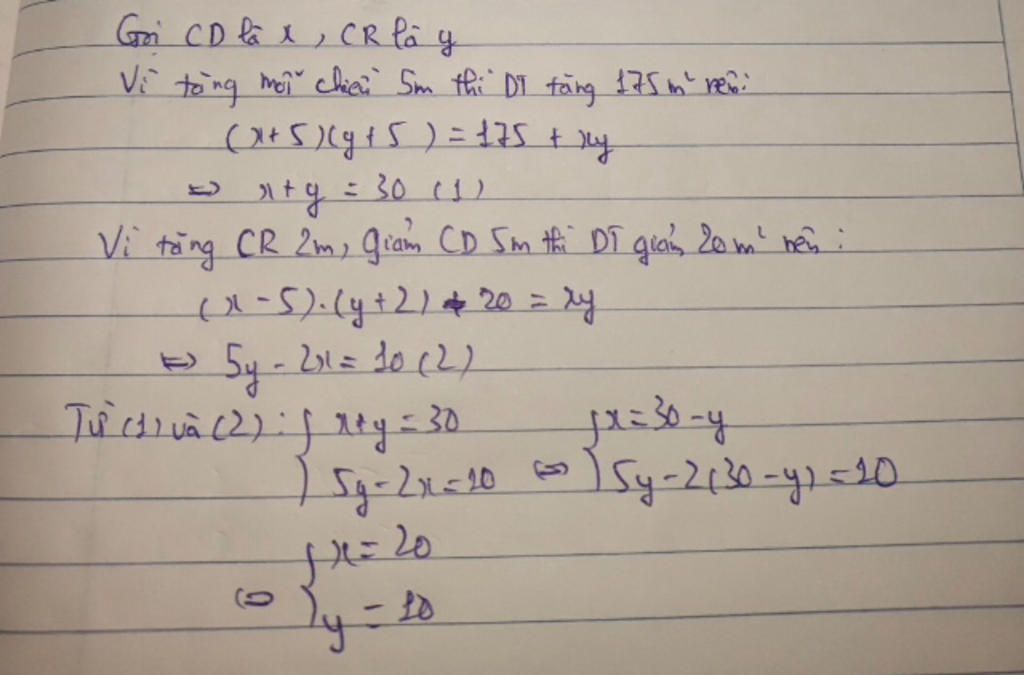 Gọi CD là x, CR là y
Vì tăng mỗi chiều 5m thì DT tăng 175m² nên:
(x+5)(y+5) = 175 + xy
⇔ x+y = 30 (1)
Vì tăng CR 2m, giảm CD 5m thì DT giảm 20m² nên:
(x-5).(y+2) + 20 = xy
⇔ 5y - 2x = 10 (2)
Từ (1) và (2): { x+y = 30 ⇔ { x = 30-y
5y-2x = 10 5y-2(30-y) = 10
⇔ { x = 20
y = 10